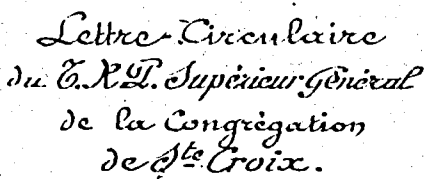 Lettre Circulaire
du T. R. P. Supérieur Général
de la Congrégation
de Ste Croix.